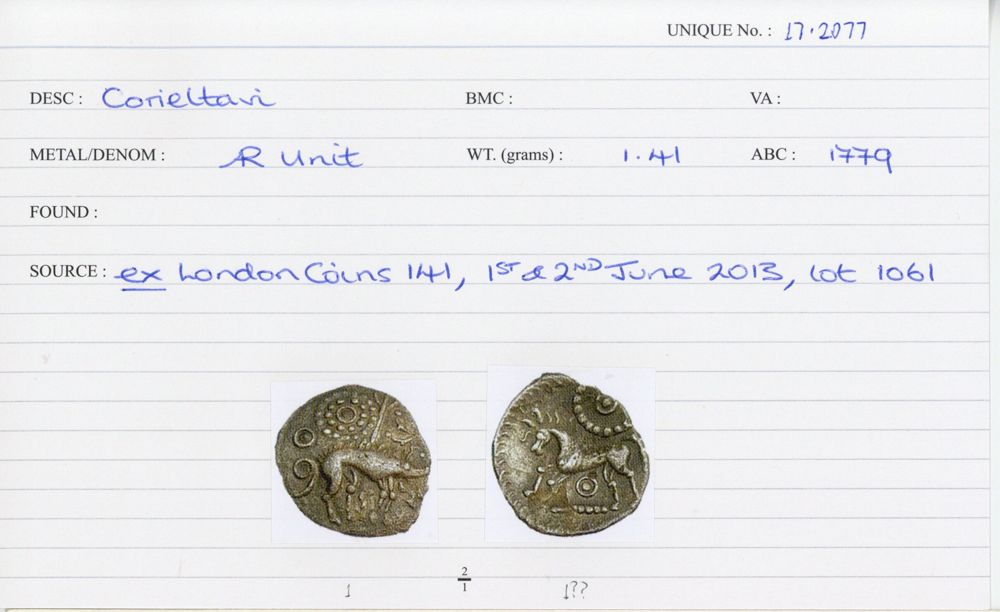 UNIQUE No. : 17.2077
DESC : Corieltavi BMC : VA :
METAL/DENOM : AR Unit WT. (grams) : 1.41 ABC : 1779
FOUND :
SOURCE : ex London Coins 141, 1ST & 2ND June 2013, lot 1061
2
1
1 1??